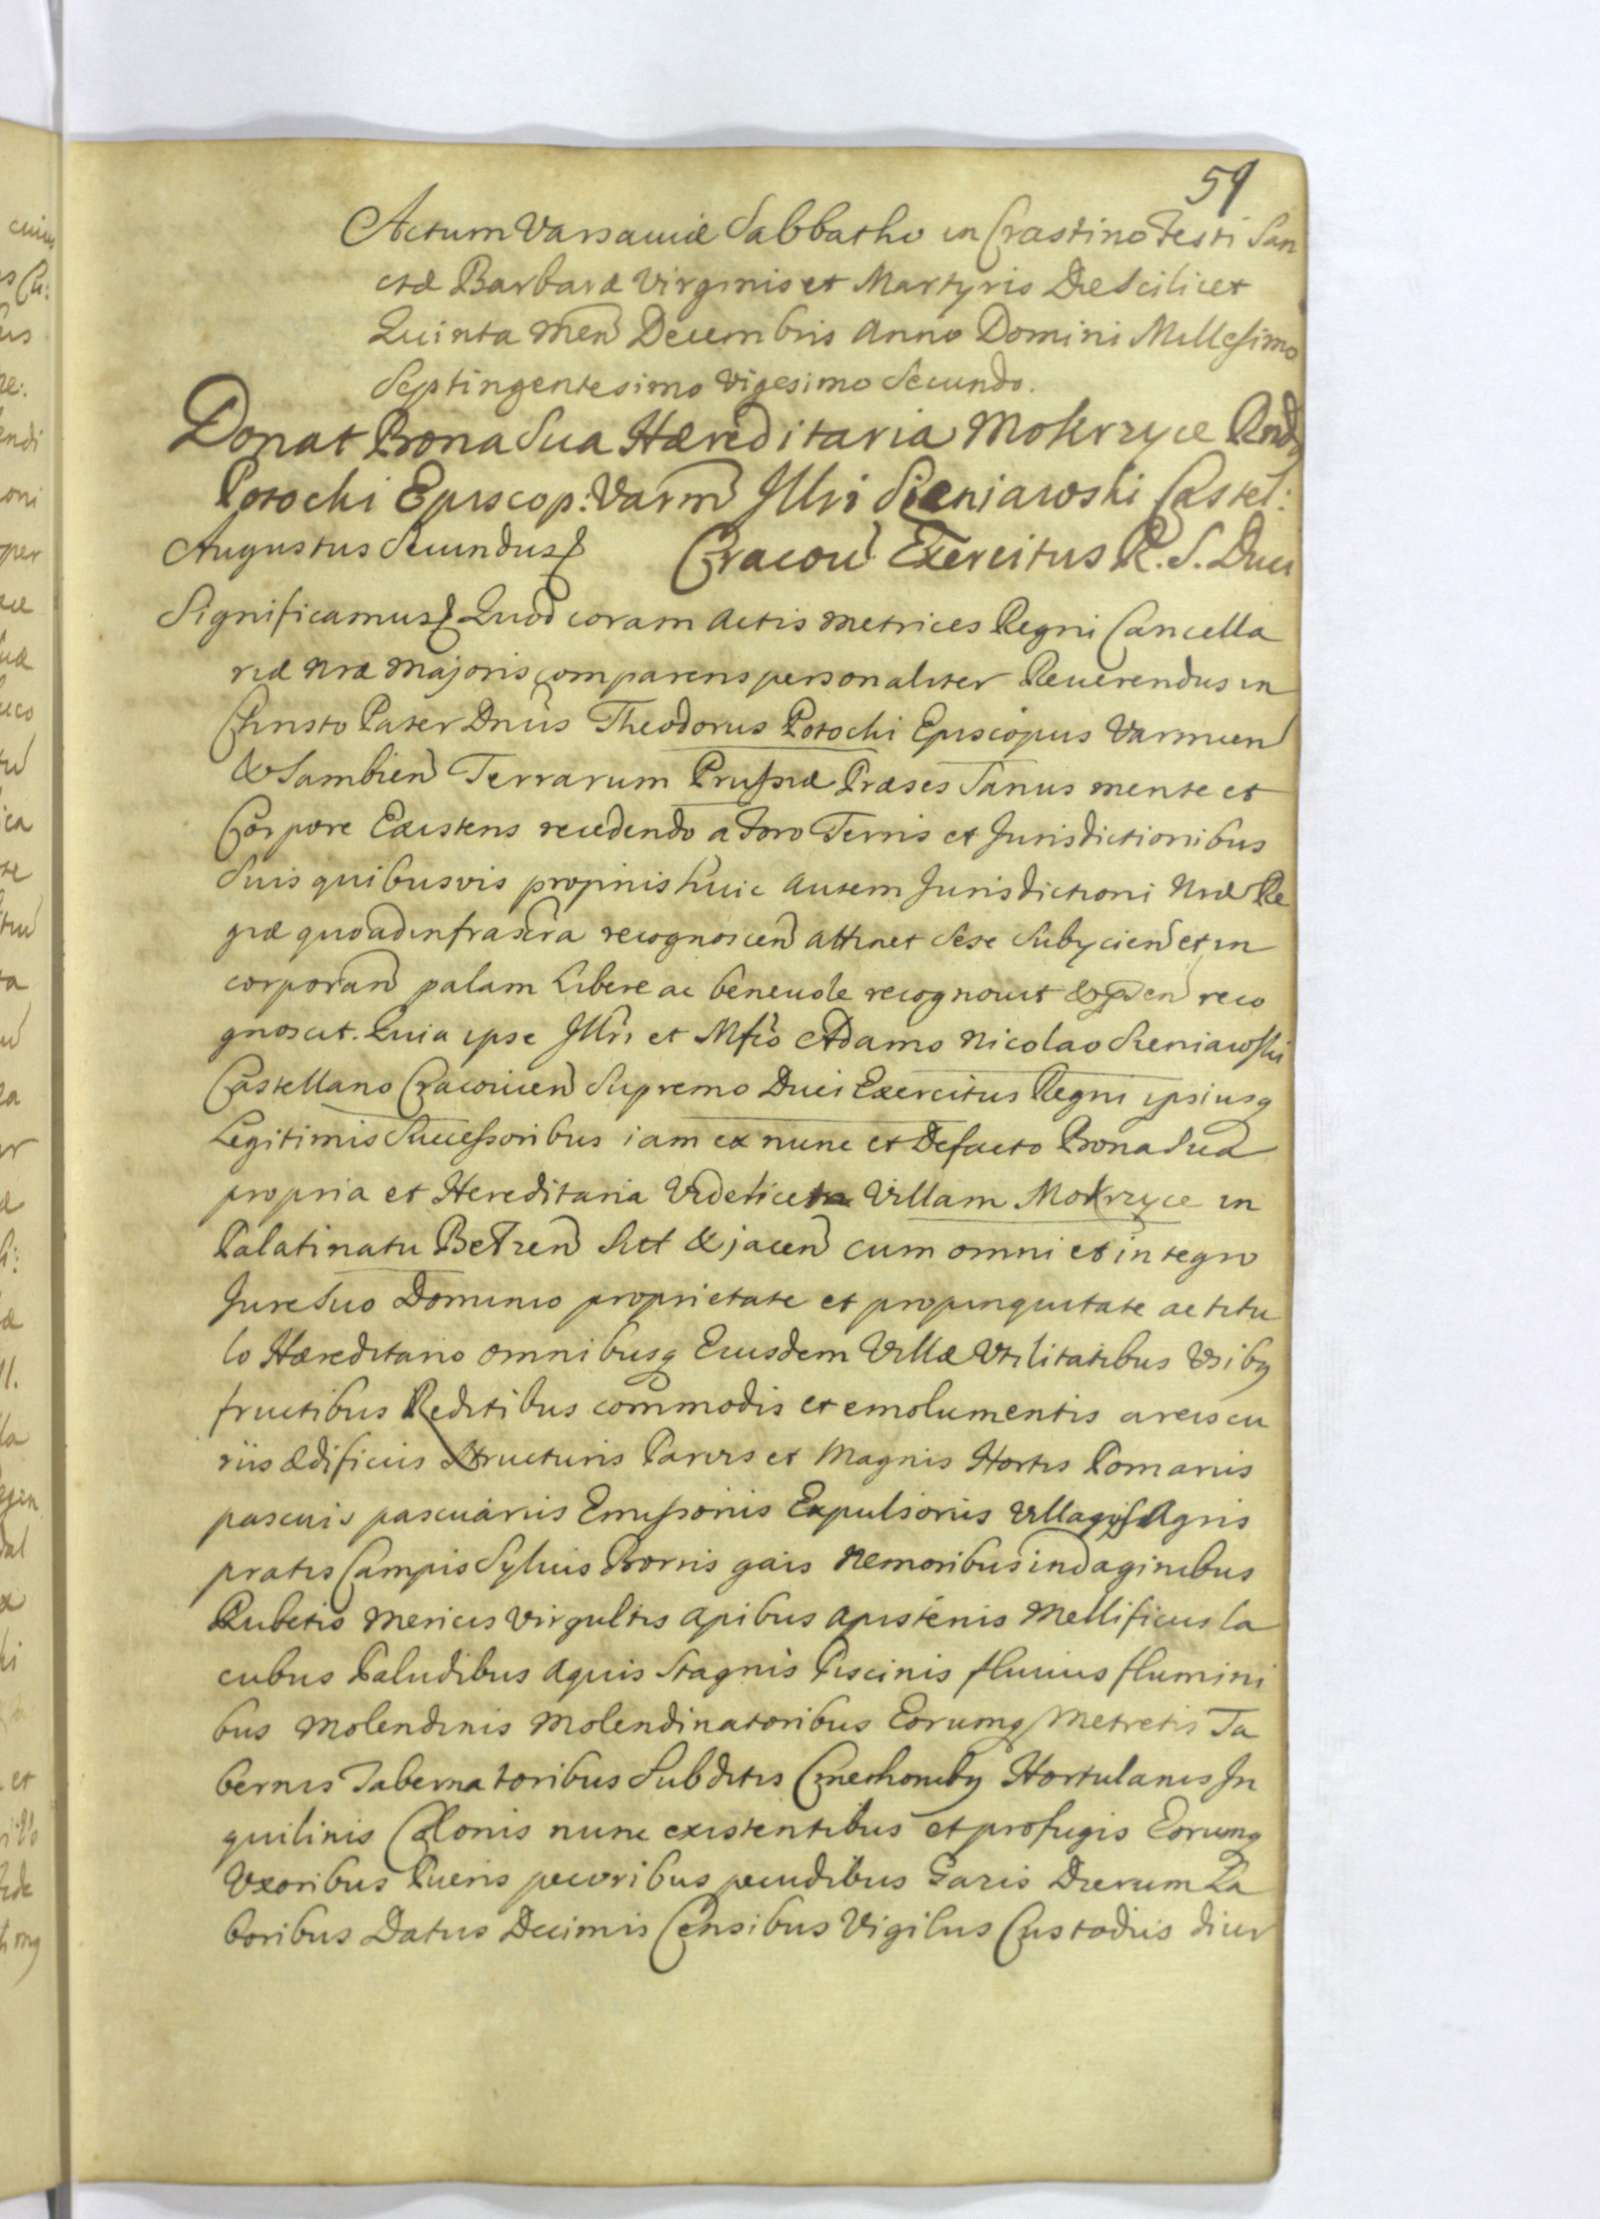 59
Actum Varsaviæ Sabbatho in Crastino Festi San
ctæ Barbaræ Virginis et Martyris Die Scilicet
Quinta Men Decembris Anno Domini Millesimo
Septingentesimo Vigesimo Secundo.
Donat Bona Sua Hæreditaria Mokrzyce Rnd
Potocki Episcop: Varm Illri Sieniawski Castel:
Augustus Secundus Cracov Exercitus R. S. Duci
Significamus Quod coram Actis Metrices Regni Cancella
riæ Nræ Majoris comparens personaliter Reverendus in
Christo Pater Dnus Theodorus Potocki Episcopus Varmien
& Sambien Terrarum Prussiæ Præses Sanus mente et
Corpore Existens recedendo a Foro Terris et Jurisdictionibus
Suis quibusvis proprinis huic autem Jurisdictioni Nræ Re
giæ quoad infrascra recognoscen attinet Sese Subycien et in
corporan palam Libere ac benevole recognovit & pden reco
gnoscit. Quia ipse Illri et Mfco Adamo Nicolao Sieniawski
Castellano Cracovien Supremo Duci Exercitus Regni ipsiusq
Legitimis Successoribus iam ex nunc et Defacto Bona Sua
propria et Hereditaria Videlicet Villam Mokrzyce in
Palatinatu Belzen Sitt & jacen cum omni et integro
Jure Suo Dominio proprietate et propinquitate ac titu
lo Hæreditario omnibusq Eiusdem Villæ Vtilitatibus Vsibq
fructibus Reditibus commodis et emolumentis areis cu
riis ædificiis Structuris Parvis et Magnis Hortis Pomariis
pascuis pascuariis Emissoriis Expulsoriis Agris
pratis Campis Sylvis Borris gais Nemoribus indaginibus
Rubetis Mericis Virgultis Apibus Apisteriis Mellificiis la
cubus Paludibus Aquis Stagnis Piscinis fluviis flumini
bus Molendinis Molendinatoribus Eorumq Metretis Ta
bernis Tabernatoribus Subditis Cmethonibq Hortulanis In
quilinis Colonis nunc existentibus et profugis Eorumq
Vxoribus Pueris pecoribus pecudibus Gazis Dierum La
boribus Datiis Decimis Censibus Vigiliis Custodiis diur